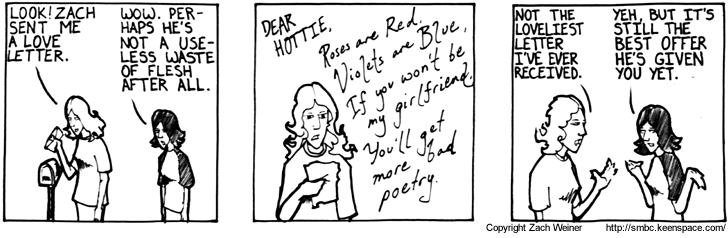 LOOK! ZACH
SENT ME
A LOVE
LETTER.
WOW. PER-
HAPS HE'S
NOT A USE-
LESS WASTE
OF FLESH
AFTER ALL.
DEAR
HOTTIE,
Roses are Red.
Violets are Blue,
If you won't be
my girlfriend,
You'll get
more bad
poetry.
NOT THE
LOVELIEST
LETTER
I'VE EVER
RECEIVED.
YEH, BUT IT'S
STILL THE
BEST OFFER
HE'S GIVEN
YOU YET.
Copyright Zach Weiner http://smbc.keenspace.com/